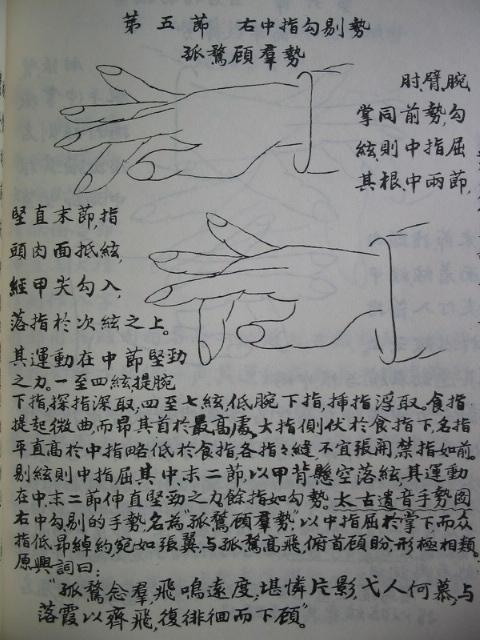 第五節 右中指勾剔勢
孤鶩顧羣勢
肘,臂,腕
掌同前勢,勾
絃則中指屈
其根中兩節,
堅直末節,指
頭肉面抵絃,
經甲尖勾入,
落指於次絃之上。
其運動在中節堅勁
之力。一至四絃,提腕
下指,探指深取,四至七絃,低腕下指,揷指浮取。食指
提起微曲,而昂其首於最高處,大指側伏於食指下,名指
平直高於中指略低於食指,各指々縫不宜張開,禁指如前,
剔絃則中指屈其中、末二節,以甲背懸空落絃,其運動
在中、末二節伸直堅勁之力,餘指如勾勢。太古遺音手勢圖
右中勾剔的手勢,名為"孤鶩顧羣勢",以中指屈於掌下,而众
指低昂綽約,宛如張翼,与孤鶩高飛,俯首顧盼,形極相類。
原興詞曰:
"孤鶩念羣,飛鳴遠度,堪憐片影,弋人何慕,与
落霞以齊飛,復徘徊而下顧。"